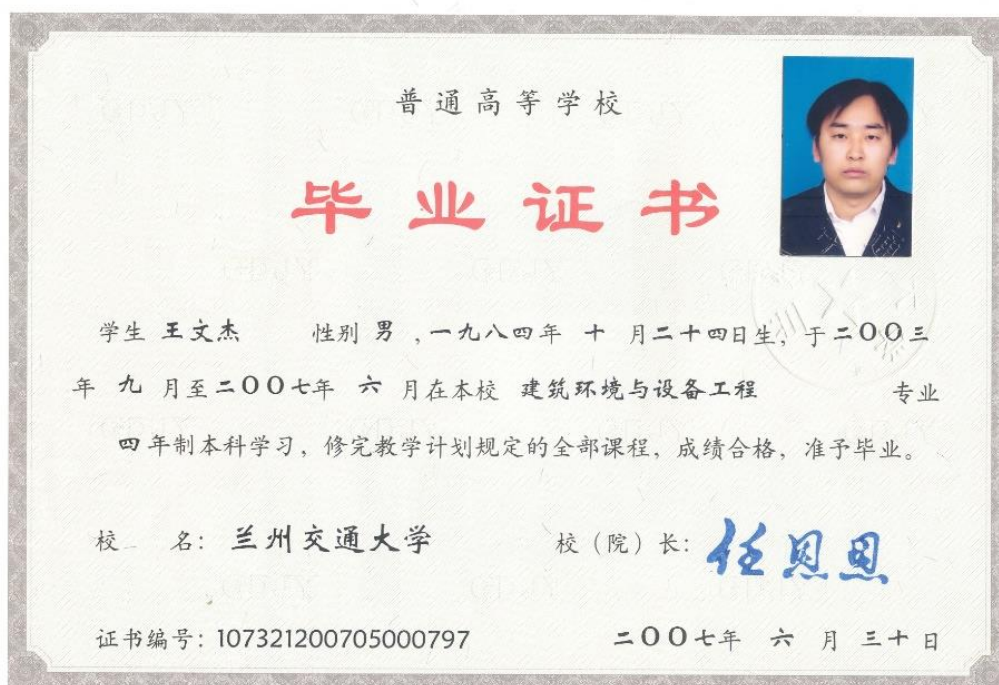 普通高等学校
毕业证书
学生 王文杰 性别 男 ,一九八四年 十 月二十四日生, 于二〇〇三
年 九 月至二〇〇七年 六 月在本校 建筑环境与设备工程 专业
四年制本科学习, 修完教学计划规定的全部课程, 成绩合格, 准予毕业。
校 名: 兰州交通大学 校(院)长: 任恩恩
证书编号: 107321200705000797 二〇〇七年 六 月 三十日